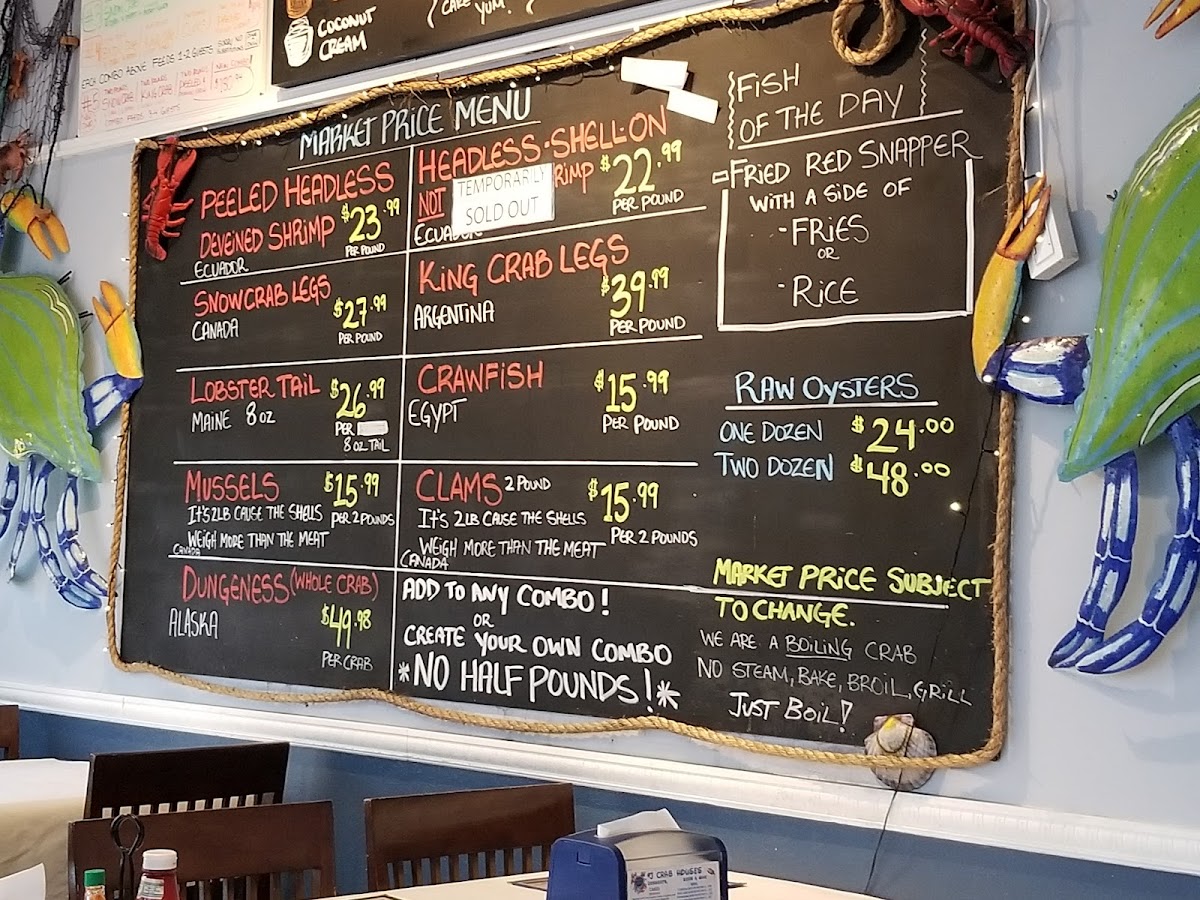 COCONUT
CREAM
CAKE
YUM!
EACH COMBO ABOVE FEEDS 1-2 GUESTS
MARKET PRICE MENU
PEELED HEADLESS
DEVEINED SHRIMP $23.99
PER POUND
ECUADOR
HEADLESS-SHELL-ON
NOT
TEMPORARILY
SOLD OUT
$22.99
PER POUND
SNOW CRAB LEGS
CANADA
$27.99
PER POUND
KING CRAB LEGS
ARGENTINA
$39.99
PER POUND
LOBSTER TAIL
MAINE 8 OZ
$26.99
PER
8 OZ TAIL
CRAWFISH
EGYPT
$15.99
PER POUND
MUSSELS $15.99
IT'S 2LB CAUSE THE SHELLS PER 2 POUNDS
WEIGH MORE THAN THE MEAT
CANADA
CLAMS 2 POUND $15.99
IT'S 2LB CAUSE THE SHELLS
WEIGH MORE THAN THE MEAT PER 2 POUNDS
CANADA
DUNGENESS (WHOLE CRAB)
ALASKA
$49.98
PER CRAB
ADD TO ANY COMBO!
OR
CREATE YOUR OWN COMBO
*NO HALF POUNDS!*
FISH
OF THE DAY
-FRIED RED SNAPPER
WITH A SIDE OF
-FRIES
OR
-RICE
RAW OYSTERS
ONE DOZEN $24.00
TWO DOZEN $48.00
MARKET PRICE SUBJECT
TO CHANGE.
WE ARE A BOILING CRAB
NO STEAM, BAKE, BROIL, GRILL
JUST BOIL!
CRAB HOUSES